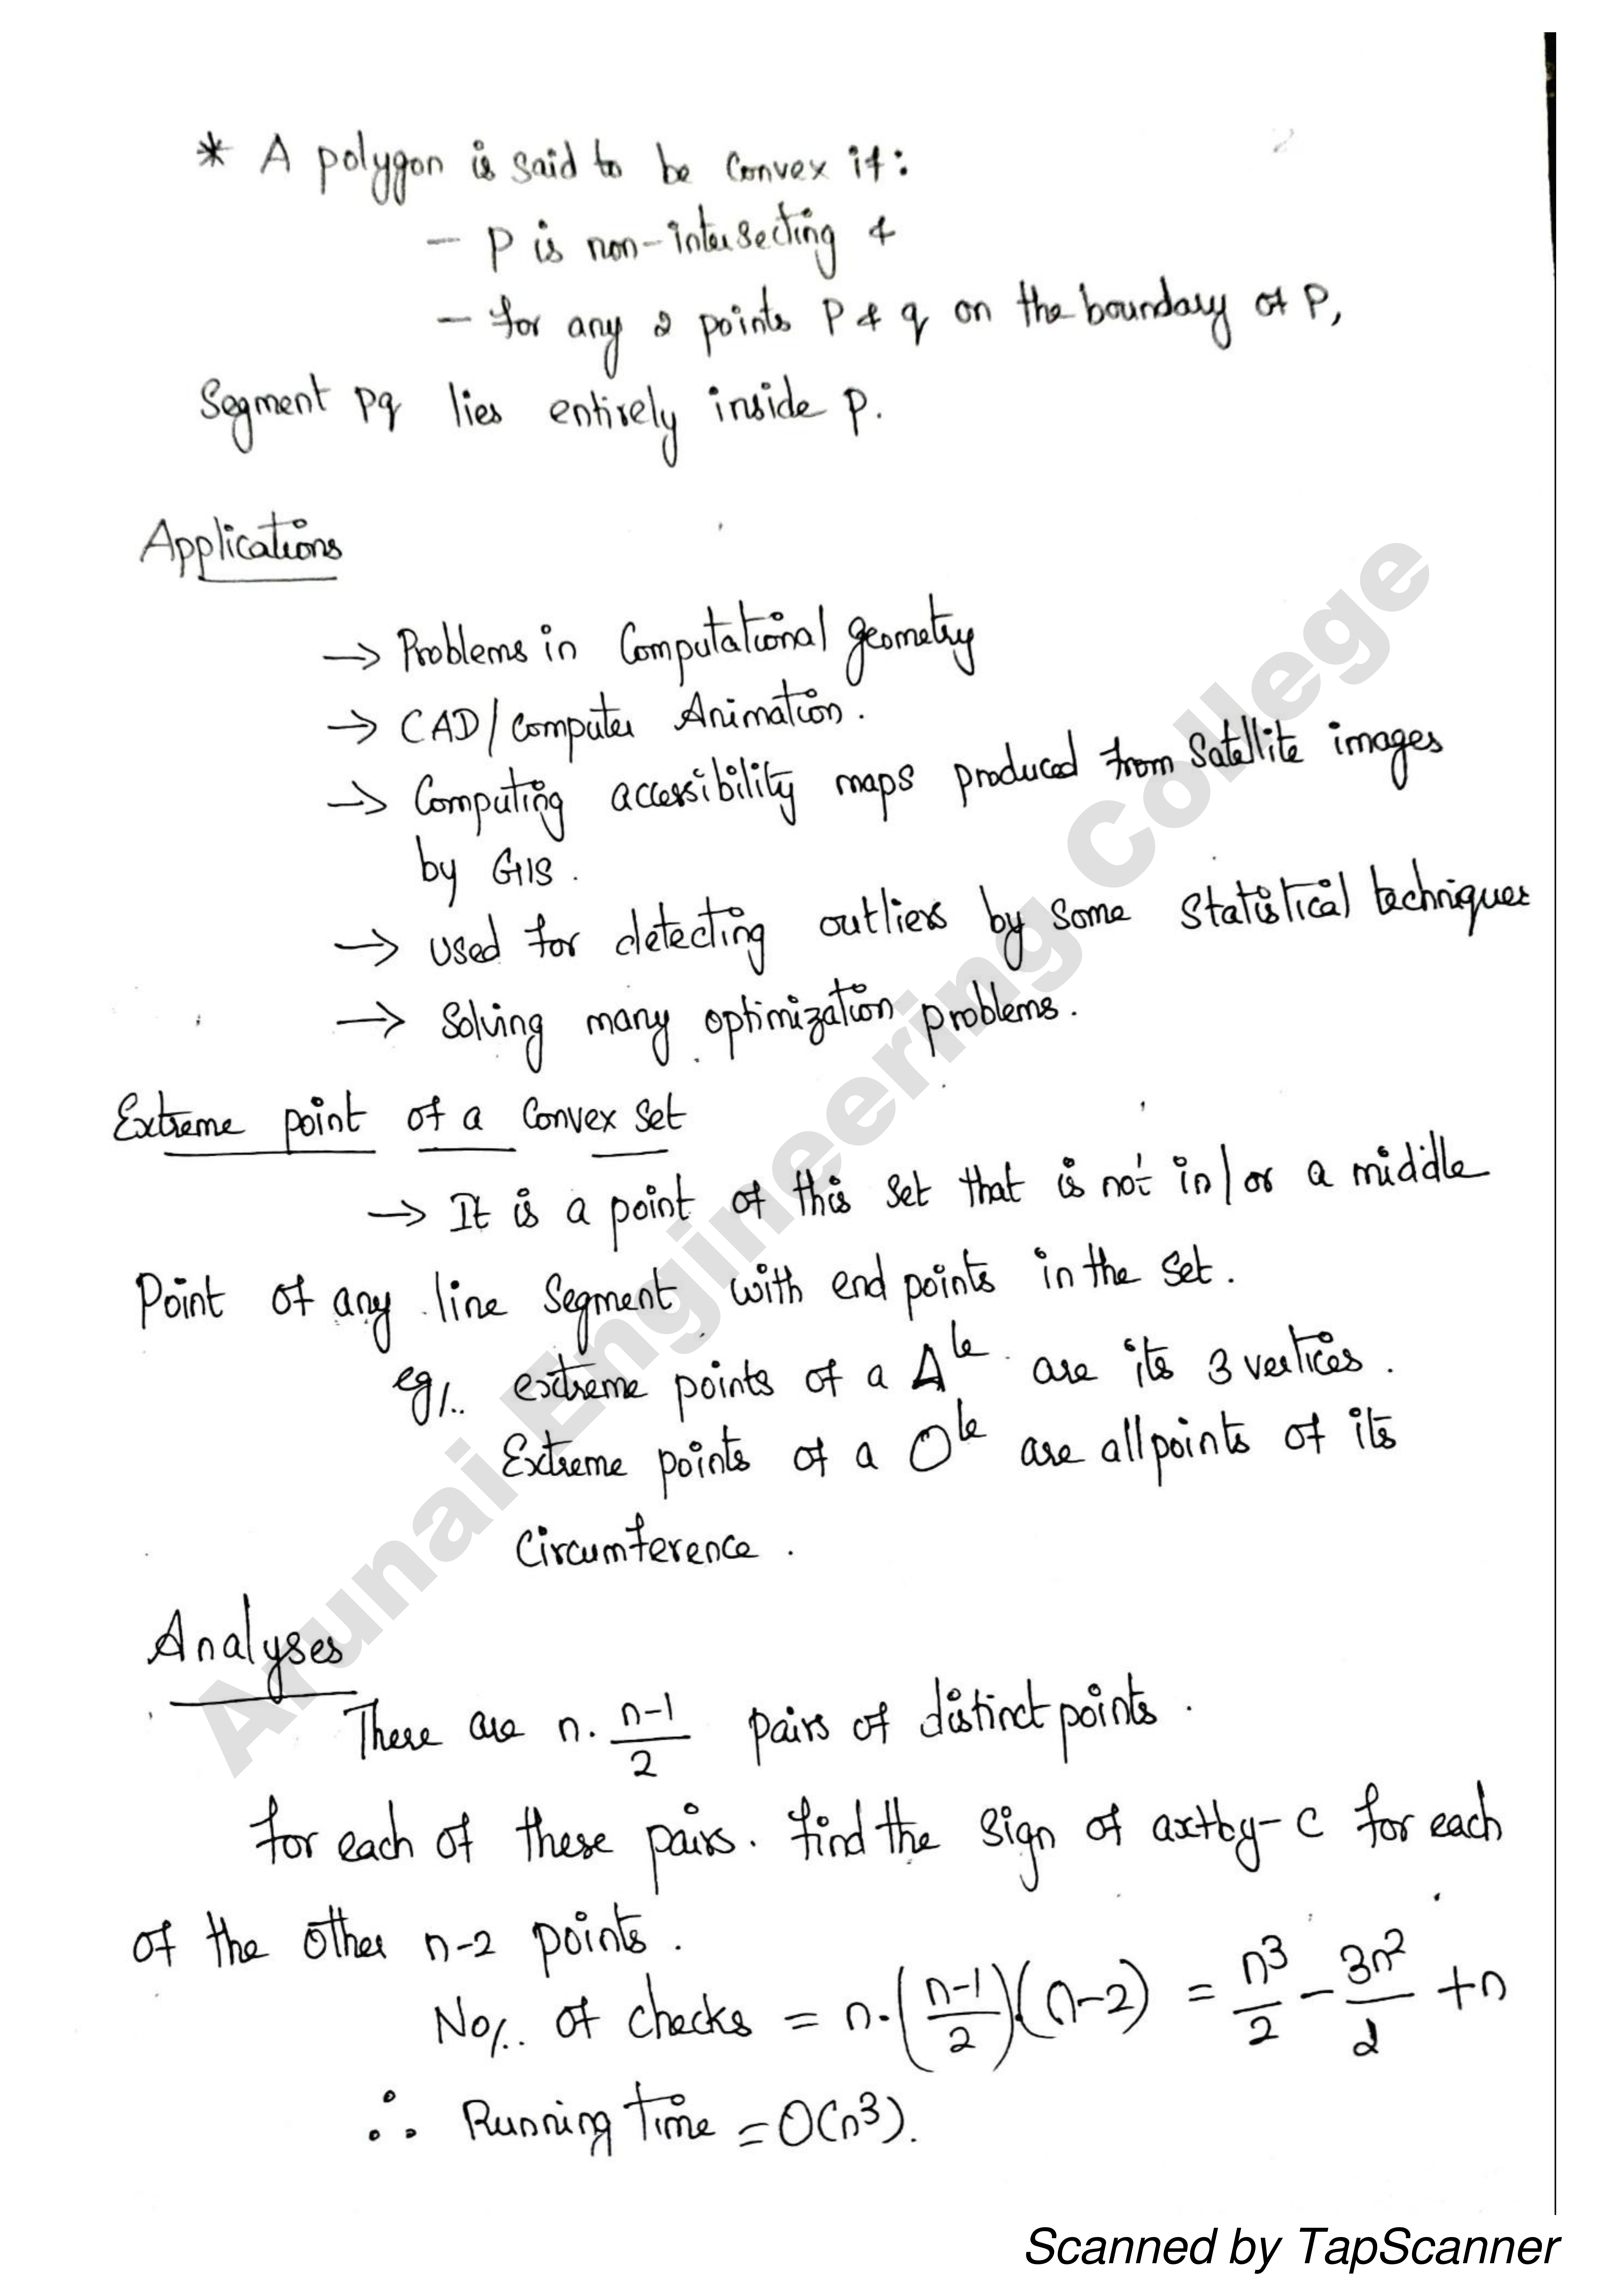 * A polygon is said to be convex if:
- P is non-intersecting &
- for any 2 points P & q on the boundary of P,
Segment pq lies entirely inside p.
Applications
→ Problems in Computational geometry
→ CAD/Computer Animation.
→ Computing accessibility maps produced from Satellite images
by GIS.
→ used for detecting outliers by some statistical techniques
→ Solving many optimization problems.
Extreme point of a Convex set
→ It is a point of this set that is not in/or a middle
Point of any line segment with end points in the set.
eg/.. extreme points of a Δle are its 3 vertices.
Extreme points of a Ole are all points of its
Circumference.
Analyses
There are n. n-1/2 pairs of distinct points.
for each of these pairs. find the sign of ax+by-c for each
of the other n-2 points.
No/.. of checks = n.(n-1/2).(n-2) = n³/2 - 3n²/2 + n
∴ Running Time = O(n³).
Arunai Engineering College
Scanned by TapScanner